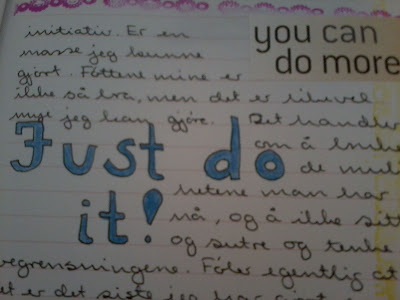 initiativ. Er en
masse jeg kunne
gjort. Føttene mine er
you can
do more
ikke så bra, men det er likevel
mye jeg kan gjøre. Det handler
om å bruke
Just do
de muli
hetene man har
it!
nå, og å ikke sitt
og sutre og tenke
egrensningene. Føler egentlig at
et er det siste jeg har gjort